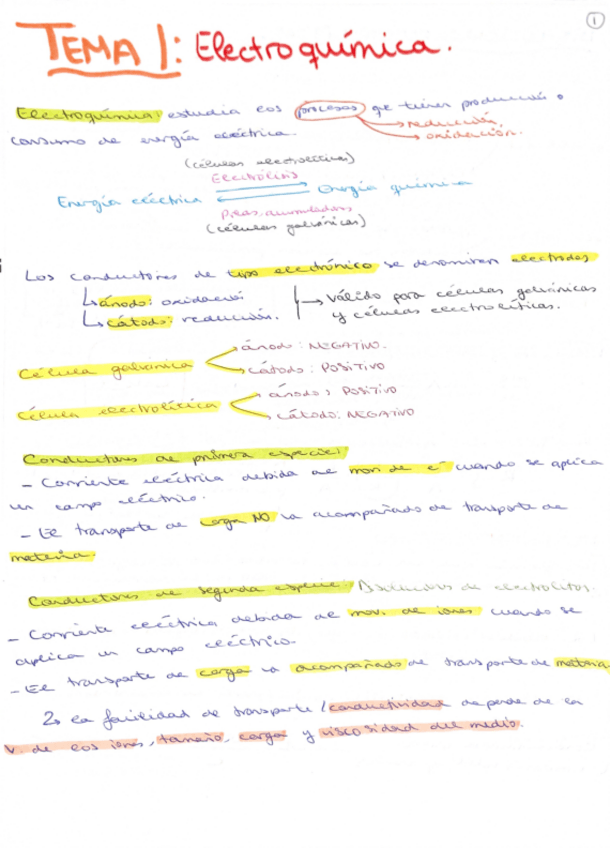 1
TEMA 1: Electroquímica.
Electroquímica: estudia los procesos que tienen producción o
→ reducción,
consumo de energía eléctrica.
→ oxidación.
(células electrolíticas)
Electrólisis
Energía eléctrica ⇌ Energía química
Pilas, acumuladores
(células galvánicas)
Los conductores de tipo electrónico se denominan electrodos
↳ ánodo: oxidación
↳ cátodo: reducción.
→ válido para células galvánicas
y células electrolíticas.
Célula galvánica
ánodo: NEGATIVO.
cátodo: POSITIVO
Célula electrolítica
ánodo: POSITIVO
cátodo: NEGATIVO
Conductores de primera especie:
- Corriente eléctrica debida al mov. de e⁻ cuando se aplica
un campo eléctrico.
- El transporte de carga NO va acompañado de transporte de
materia.
Conductores de segunda especie: Disoluciones de electrolitos.
- Corriente eléctrica debida al mov. de iones cuando se
aplica un campo eléctrico.
- El transporte de carga va acompañado de transporte de materia,
↳ la facilidad de transporte / conductividad depende de la
v. de los iones, tamaño, carga y viscosidad del medio.